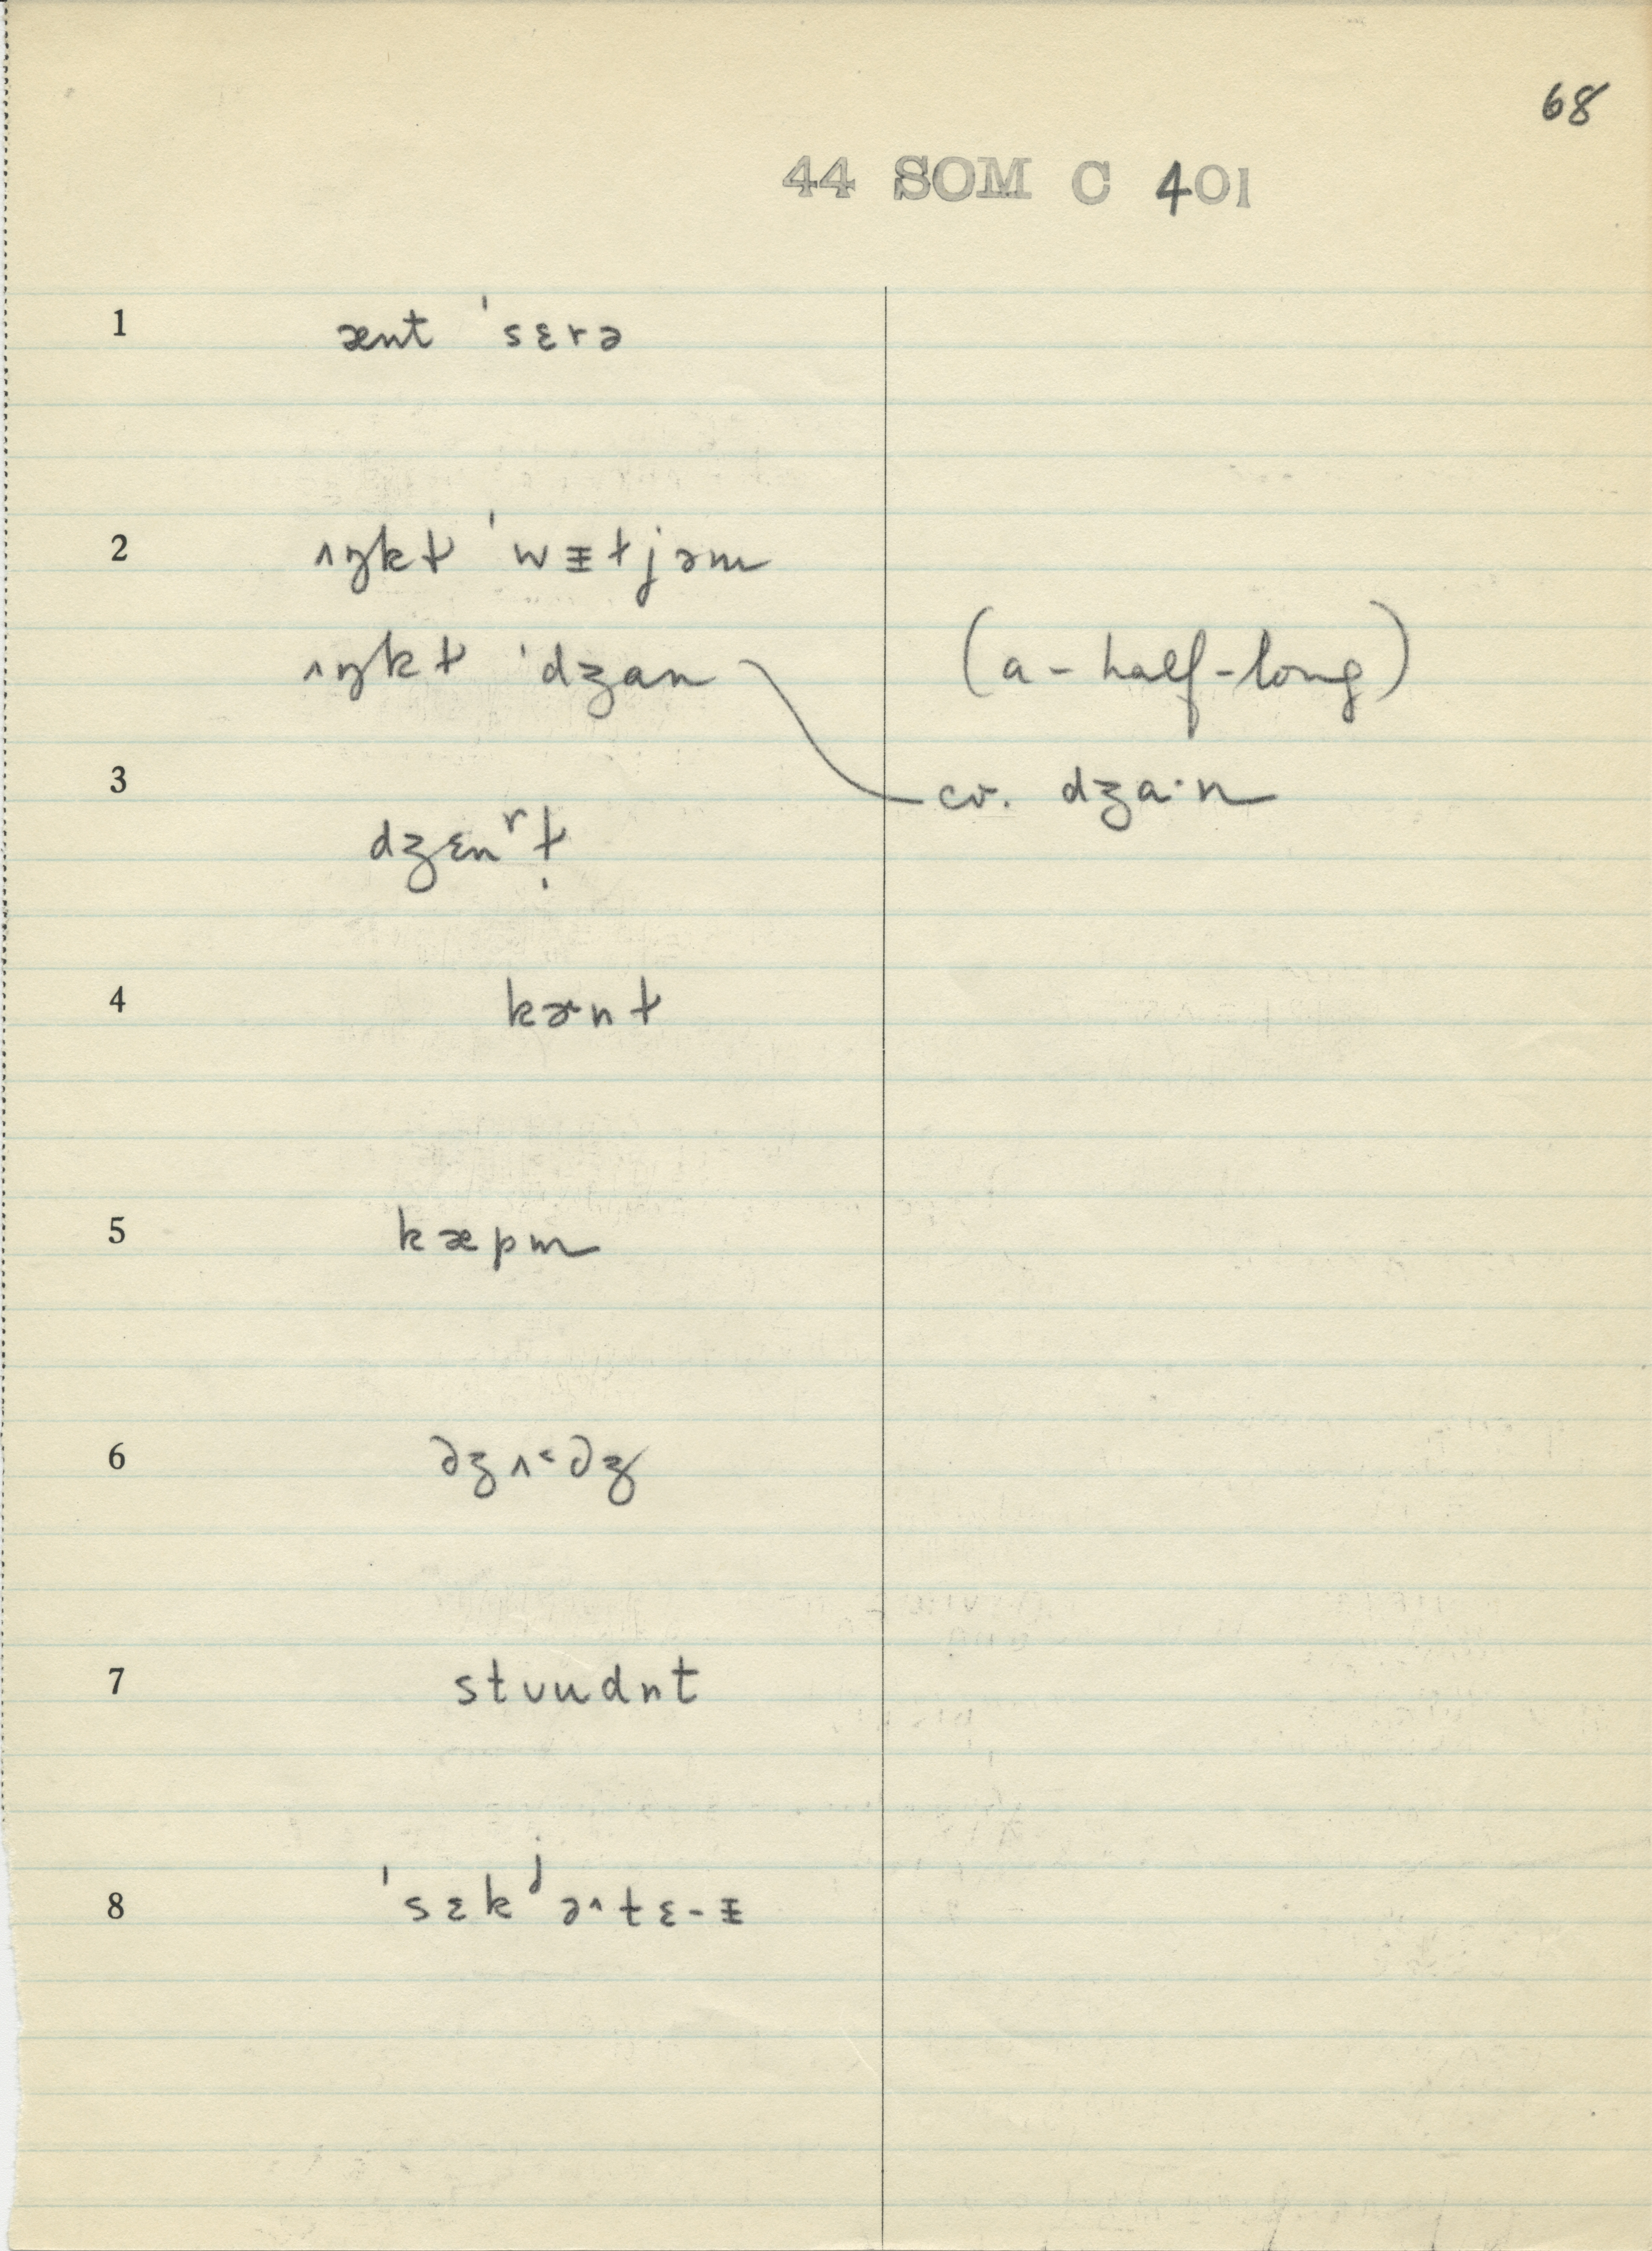 68
44 SOM C 401
1 ænt ˈsɛrə
2 ʌŋkɫ ˈwᵻɫjəm
ʌŋkɫ ˈdʒan (a-half-long)
cv. dʒaˑn
3 dʒɛnʳɫ̩
4 kɚnɫ
5 kæpm
6 dʒʌ˂dʒ
7 stʊudnt
8 ˈsɛkʲə^tɛ-ᵻ